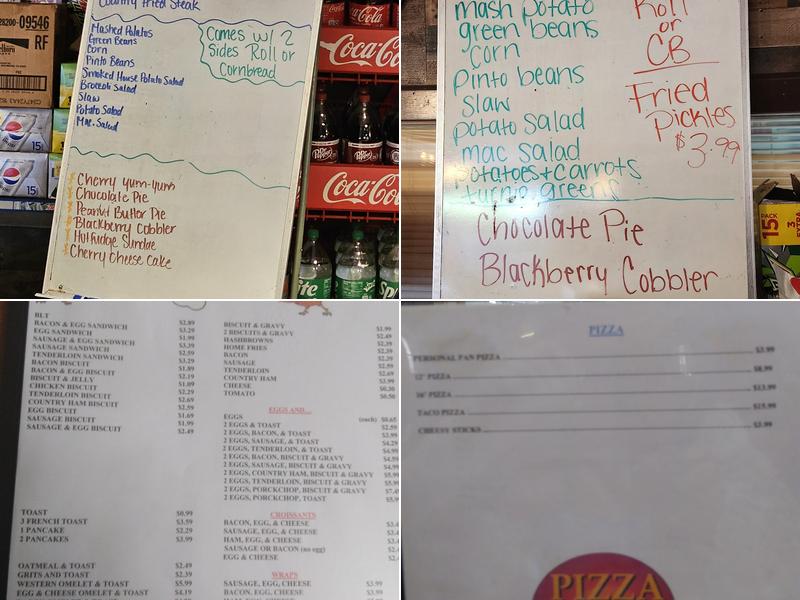 Country Fried Steak
Mashed Potatos
Green Beans
Corn
Pinto Beans
Smoked House Potato Salad
Broccoli Salad
Slaw
Potato Salad
Mac. Salad
Comes w/ 2
Sides Roll or
Cornbread
Cherry yum-yum
Chocolate Pie
Peanut Butter Pie
Blackberry Cobbler
Hot fudge Sundae
Cherry Cheese Cake
28200-09546
RF
15
15
Coca-Cola
Coca-Cola
Dr Pepper
Coca-Cola
mash potato
green beans
corn
Pinto beans
slaw
potato salad
mac salad
potatoes + carrots
turnip greens
Roll
or
CB
Fried
Pickles
$3.99
Chocolate Pie
Blackberry Cobbler
15 PACK
BLT
BACON & EGG SANDWICH $2.89
EGG SANDWICH $3.29
SAUSAGE & EGG SANDWICH $1.99
SAUSAGE SANDWICH $3.39
TENDERLOIN SANDWICH $2.59
BACON BISCUIT $3.29
BACON & EGG BISCUIT $1.89
BISCUIT & JELLY $2.19
CHICKEN BISCUIT $1.09
TENDERLOIN BISCUIT $2.29
COUNTRY HAM BISCUIT $2.69
EGG BISCUIT $2.59
SAUSAGE BISCUIT $1.69
SAUSAGE & EGG BISCUIT $1.99
$2.49
TOAST $0.99
3 FRENCH TOAST $3.59
1 PANCAKE $2.29
2 PANCAKES $3.99
OATMEAL & TOAST $2.49
GRITS AND TOAST $2.39
WESTERN OMELET & TOAST $5.99
EGG & CHEESE OMELET & TOAST $4.19
BISCUIT & GRAVY $1.99
2 BISCUITS & GRAVY $2.49
HASHBROWNS $2.39
HOME FRIES $2.39
BACON $2.39
SAUSAGE $2.59
TENDERLOIN $2.69
COUNTRY HAM $3.99
CHEESE $0.30
TOMATO $0.50
EGGS AND....
EGGS (each) $0.65
2 EGGS & TOAST $2.59
2 EGGS, BACON, & TOAST $3.99
2 EGGS, SAUSAGE, & TOAST $4.29
2 EGGS, TENDERLOIN, & TOAST $4.49
2 EGGS, BACON, BISCUIT & GRAVY $4.59
2 EGGS, SAUSAGE, BISCUIT & GRAVY $4.99
2 EGGS, COUNTRY HAM, BISCUIT & GRAVY $5.99
2 EGGS, TENDERLOIN, BISCUIT & GRAVY
2 EGGS, PORKCHOP, BISCUIT & GRAVY
2 EGGS, PORKCHOP, TOAST
CROISSANTS
BACON, EGG, & CHEESE
SAUSAGE, EGG, & CHEESE
HAM, EGG, & CHEESE
SAUSAGE OR BACON (no egg)
EGG & CHEESE
WRAPS
SAUSAGE, EGG, CHEESE $3.99
BACON, EGG, CHEESE $3.99
PIZZA
PERSONAL PAN PIZZA $3.99
12" PIZZA $8.99
16" PIZZA $13.99
TACO PIZZA $15.99
CHEESY STICKS $3.99
PIZZA